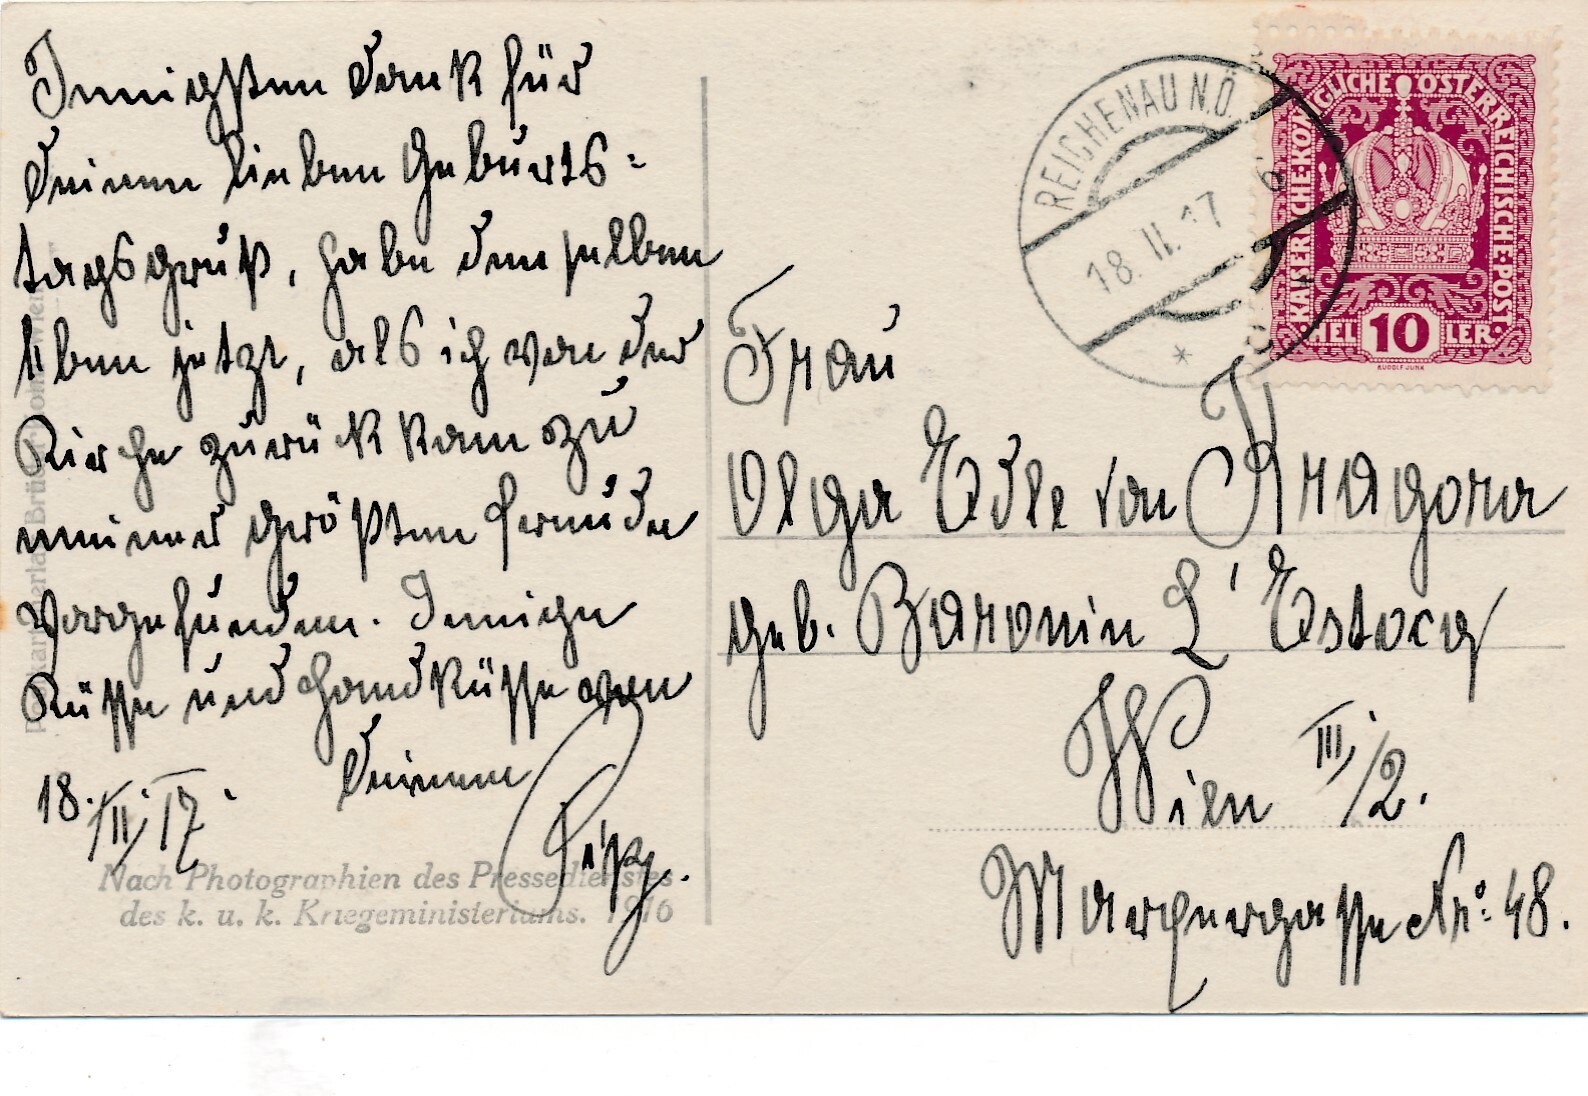 Innigsten Dank für
Deinen lieben Geburts=
tagsgruß, habe denselben
eben jetzt, als ich von der
Kirche zurück kam zu
meiner größten Freude
vorgefunden. Innige
Küsse und Handküsse von
Deinem
18./II. 17.
Nach Photographien des Pressedienstes
des k. u. k. Kriegeministeriums. 1916
REICHENAU N.Ö.
18. II. 17
KAISERLICHE KÖNIGLICHE ÖSTERREICHISCHE POST
HELLER
10
RUDOLF JUNK
Frau
Olga Edle von Kragora
geb. Baronin L'Estocq
Wien III/2.
Marxergasse Nro: 48.